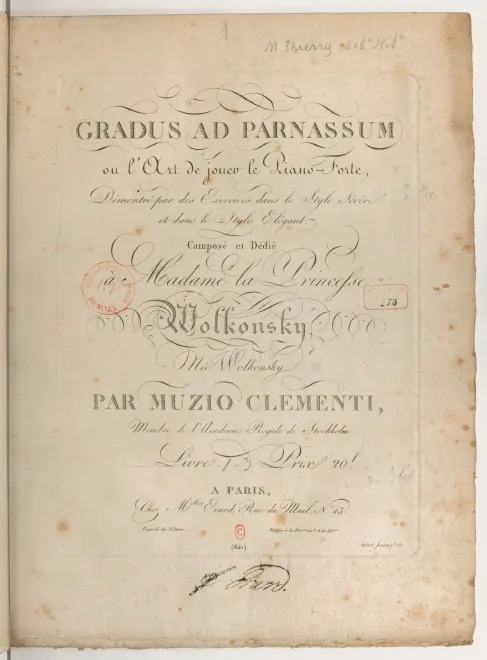 1
M Thierry
GRADUS AD PARNASSUM
ou l'Art de jouer le Piano-Forte,
Démontré par des Exercices dans le Style Sévère
et dans le Style Elégant.
Composé et Dédié
à Madame la Princesse
Wolkonsky,
Née Wolkonsky
PAR MUZIO CLEMENTI,
Membre de l'Académie Royale de Stockholm.
Livre 1 Prix 20f
253
A PARIS,
Chez Melles Erard, Rue du Mail, No. 13.
Propriété des Editeurs
(840)